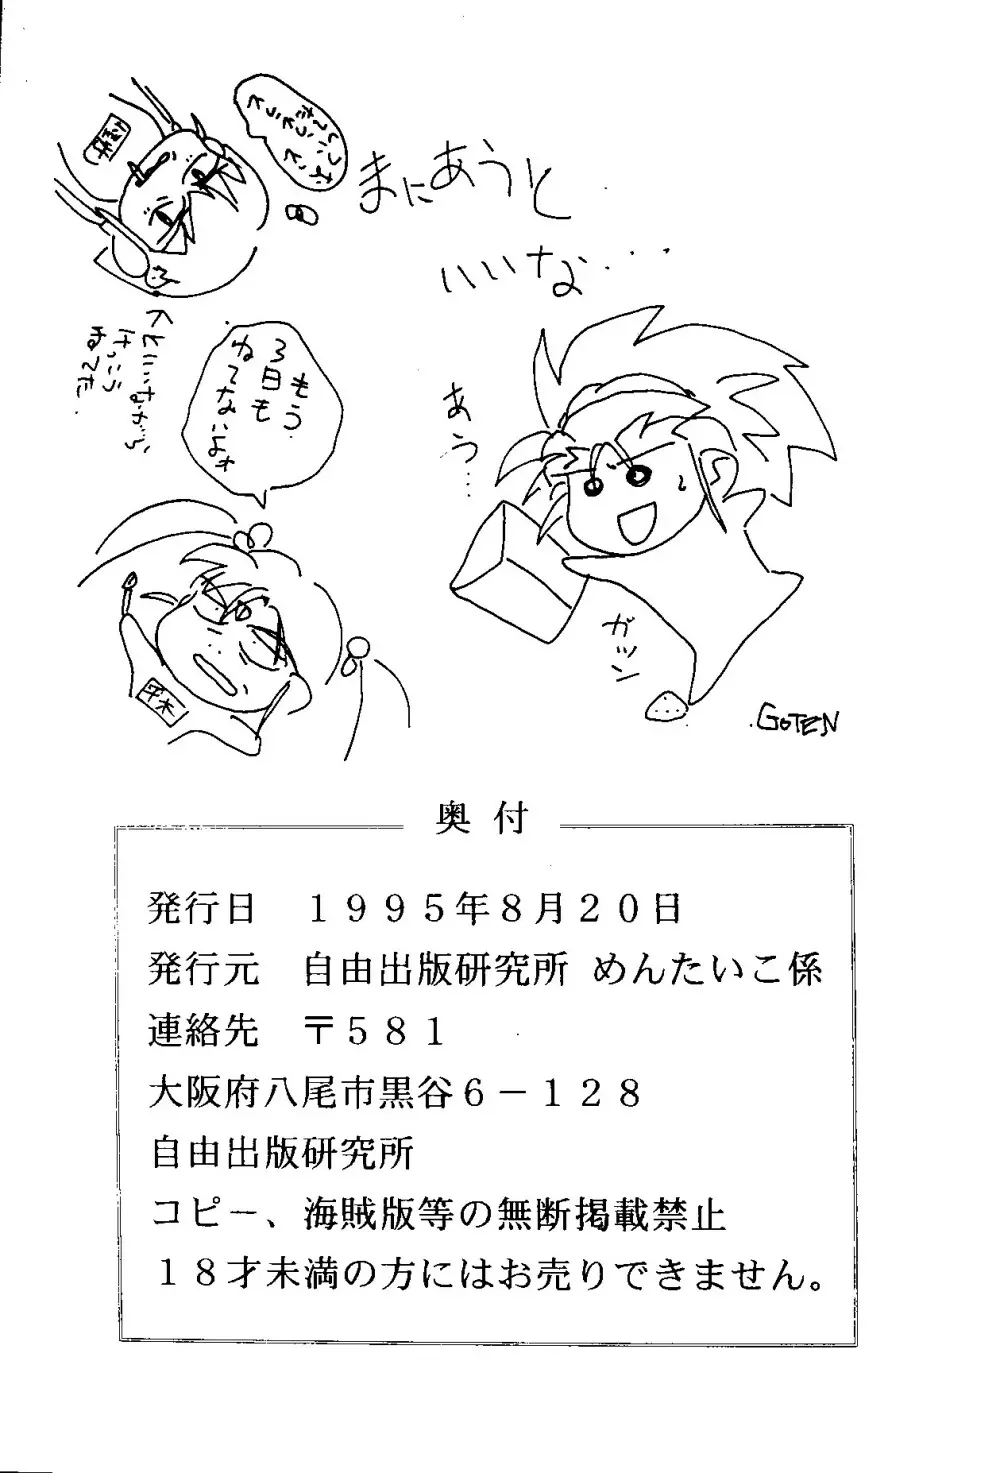 まにあうと
いいな・・・
あう・・・
ガッン
GOTEN
もう
3日も
ねてないよォ
といいながら
けっこう
ねてた.
平木
奥付
発行日　１９９５年８月２０日
発行元　自由出版研究所 めんたいこ係
連絡先　〒５８１
大阪府八尾市黒谷６－１２８
自由出版研究所
コピー、海賊版等の無断掲載禁止
１８才未満の方にはお売りできません。